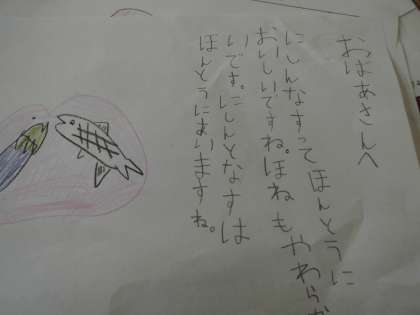 おばあさんへ
にしんなすってほんとうに
おいしいですね。ほねもやわらか
いです。にしんとなすは
ほんとうにあいますね。